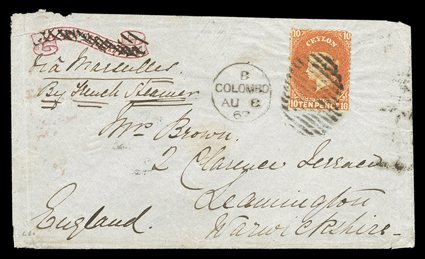 via Marseilles
By French Steamer
B
COLOMBO
AU 8
67
10 10
CEYLON
10 TEN PENCE 10
Mrs Brown.
2 Clarence Terrace
Leamington
England.
Warwickshire